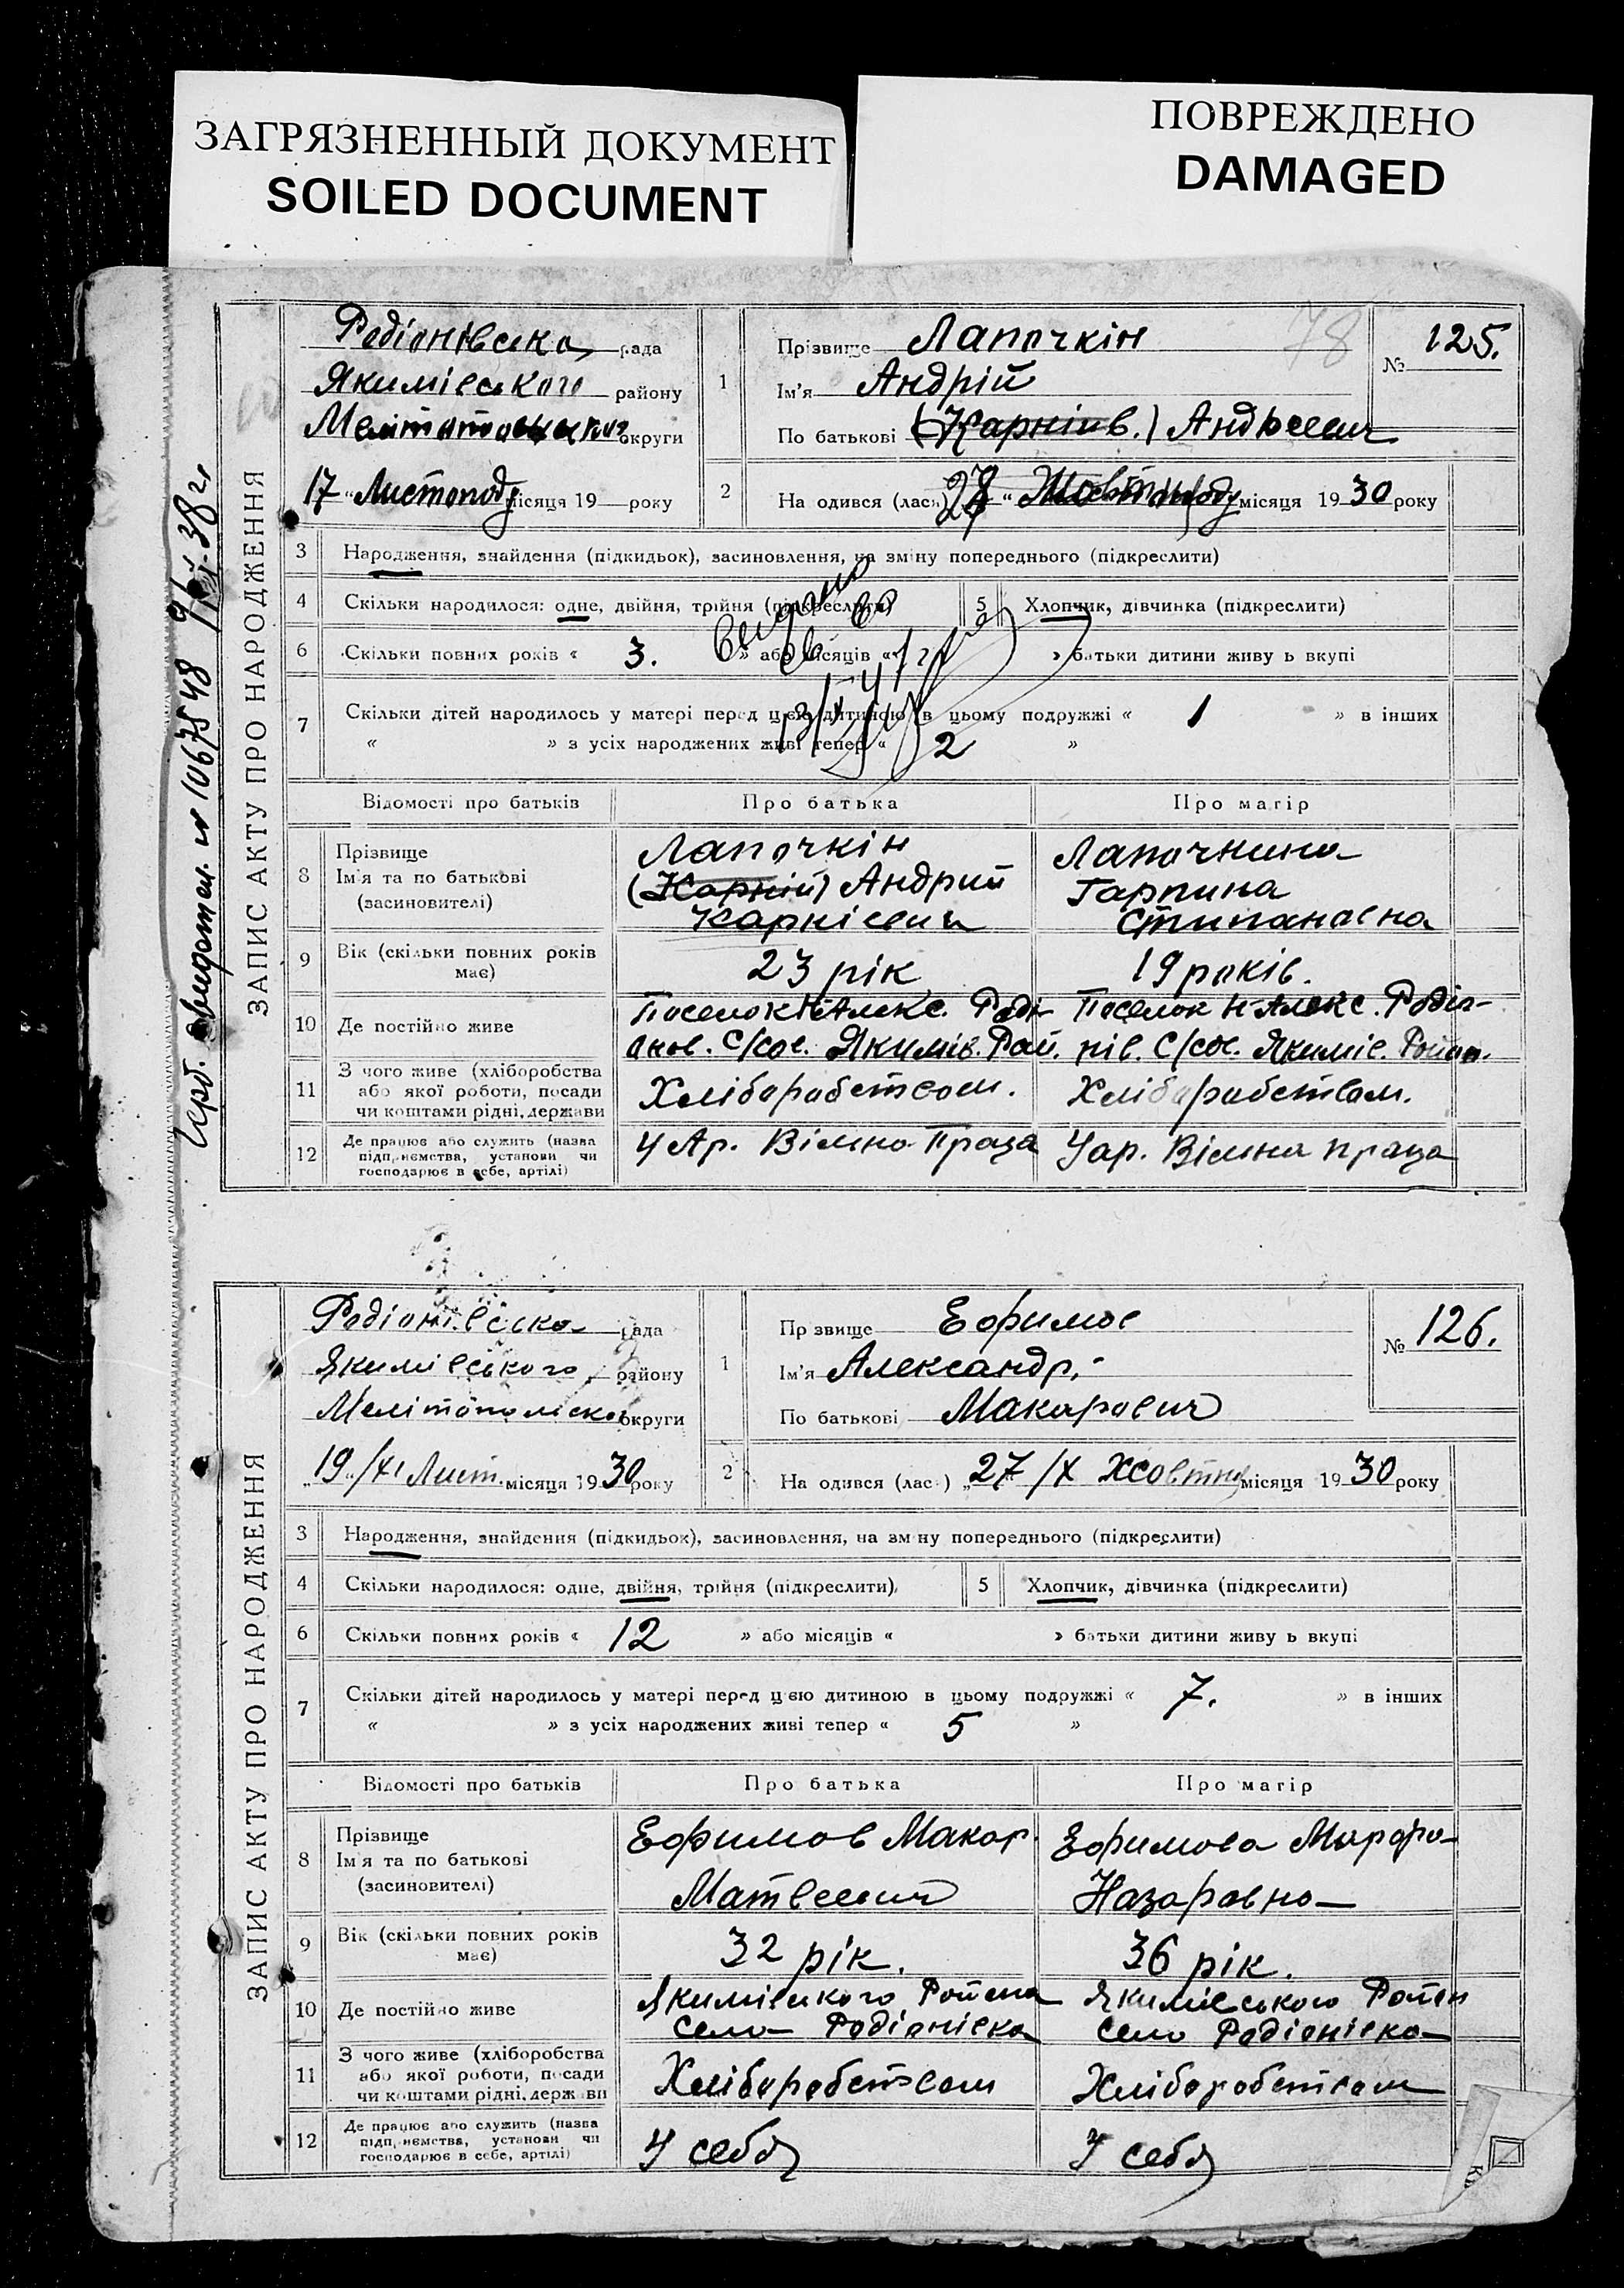 ЗАГРЯЗНЕННЫЙ ДОКУМЕНТ
SOILED DOCUMENT
ПОВРЕЖДЕНО
DAMAGED
ЗАПИС АКТУ ПРО НАРОДЖЕННЯ
Родіонівська рада
Якимівського району
округи
17 Листопаду місяця 19 року
1 Прізвище Лапочкін
№ 125.
78
Ім'я Андрій
По батькові (Карніїв.) Андреевич
2 На одився (лась) місяця 1930 року
3 Народження, знайдення (підкидьок), засиновлення, на зміну попереднього (підкреслити)
4 Скільки народилося: одне, двійня, трійня (підкреслити)
5 Хлопчик, дівчинка (підкреслити)
6 Скільки повних років « 3. » або місяців « » батьки дитини живу ь вкупі
7 Скільки дітей народилось у матері перед цією дитиною в цьому подружжі « 1 » в інших
« » з усіх народжених живі тепер « 2 »
Відомості про батьків Про батька Про матір
8 Прізвище
Ім'я та по батькові
(засиновителі)
Лапочкін
(Карній) Андрий
Карнієвич
Лапочкина
Гарпина
Стипановна
9 Вік (скільки повних років має) 23 рік 19 років.
10 Де постійно живе
Поселок Н-Алекс. Роді-
онов. С/сов. Якимів. Рай.
Поселок Н-Алекс. Родіо-
нів. С/сов. Якимів. Район.
11 З чого живе (хліборобства
або якої роботи, посади
чи коштами рідні, держави
Хліборобством.
Хліборобством.
12 Де працює або служить (назва
підприємства, установи чи
господарює в себе, артілі)
У Ар. Вільна праца
У ар. Вільна праца
видано
№ 1067548
38 г.
ЗАПИС АКТУ ПРО НАРОДЖЕННЯ
Родіонівська рада
Якимівського району
Мелітопольскої округи
„19„/XI Лист. місяця 1930 року
1 Пр звище Ефимов
№ 126.
Ім'я Александр.
По батькові Макарович
2 На одився (лас ) „27 /X Жовтня місяця 1930 року
3 Народження, знайдення (підкидьок), засиновлення, на зм ну попереднього (підкреслити)
4 Скільки народилося: одне, двійня, трійня (підкреслити)
5 Хлопчик, дівчинка (підкреслити)
6 Скільки повних років « 12 » або місяців « » батьки дитини живу ь вкупі
7 Скільки дітей народилось у матері перед цією дитиною в цьому подружжі « 7. » в інших
« » з усіх народжених живі тепер « 5 »
Відомості про батьків Про батька Про матір
8 Прізвище
Ім'я та по батькові
(засиновителі)
Ефимов Макар.
Матвеевич
Ефимова Марфа
Назаровна
9 Вік (скільки повних років має) 32 рік. 36 рік.
10 Де постійно живе
Якимівського Района
Село Родіонівка
Якимівського Район
Село Родіонівка
11 З чого живе (хліборобства
або якої роботи, посади
чи коштами рідні, держави
Хліборобством
Хліборобством
12 Де працює або служить (назва
підприємства, установи чи
господарює в себе, артілі)
У себя
У себя